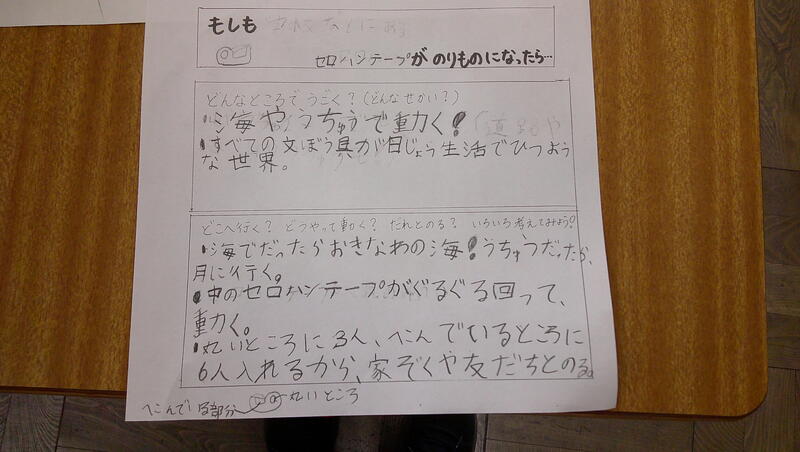 もしも
セロハンテープが のりものになったら…
どんなところで うごく?(どんなせかい?)
・海やうちゅうで動く!
・すべての文ぼう具が日じょう生活でひつよう
な世界。
どこへ行く? どうやって動く? だれとのる? いろいろ考えてみよう!
・海でだったらおきなわの海!うちゅうだったら、
月に行く。
・中のセロハンテープがぐるぐる回って、
動く。
・丸いところに3人、へこんでいるところに
6人入れるから、家ぞくや友だちとのる。
へこんでいる部分 丸いところ